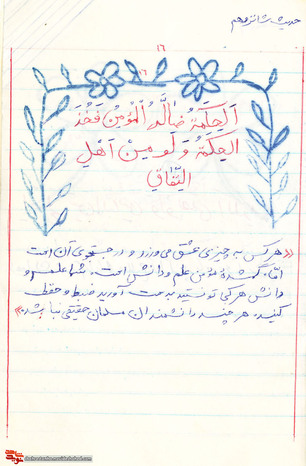 حدیث شانزدهم
۱۶
۱۶
اَلحِکمَةُ ضالَّةُ المُؤمِنُ فَخُذَ
الحِکمَةَ وَ لَو مِنْ اَهْلِ
النِّفاقِ
«هر کس به چیزی عشق می‌ورزد و در جستجوی آن است
امّا گمشدهٔ مؤمن علم و دانش است، شما علم و
دانش هر کجا توانستید بدست آورید ضبط و حفظ
کنید. هر چند دانشمند آن مسلمان حقیقی نباشد.»